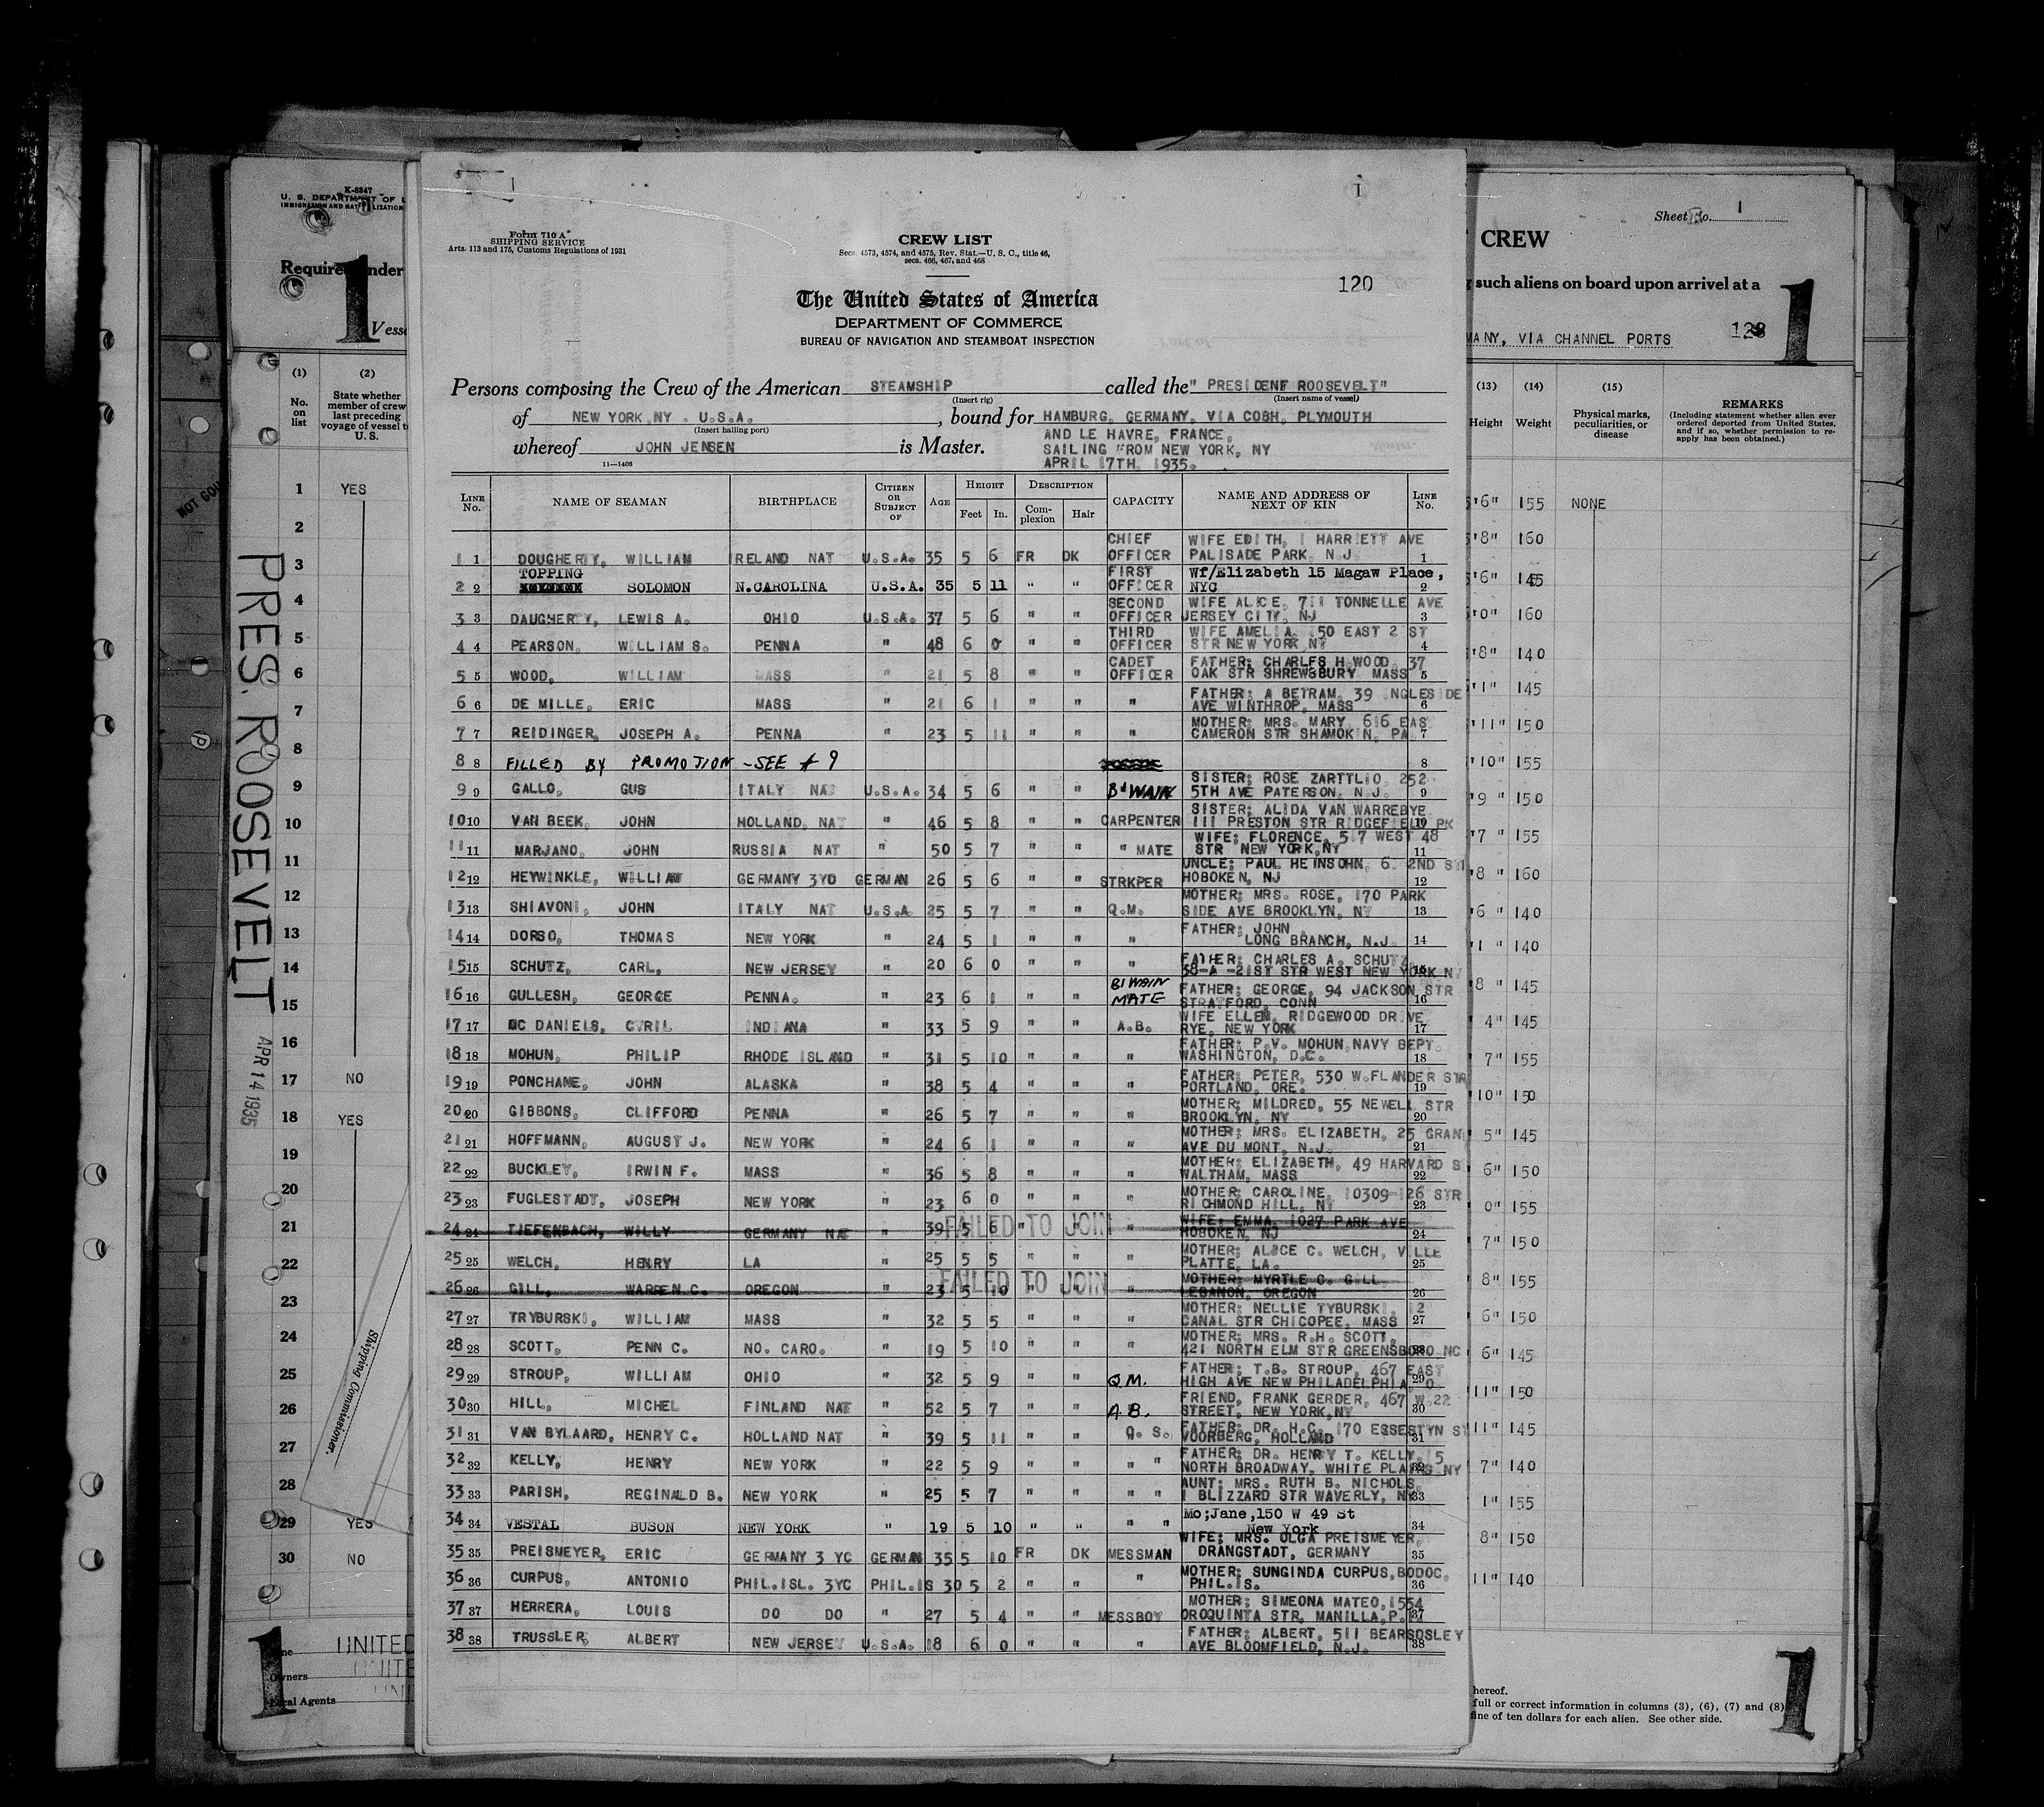 K-8347
U. S. DEPARTMENT OF L
IMMIGRATION AND NATURALIZATION
Required under
1
Vesse
(1)
No.
on
list
(2)
State whether
member of crew
last preceding
voyage of vessel to
U. S.
NOT GOU
PRES. ROOSEVELT
APR 14 1935
1 YES
2
3
4
5
6
7
8
9
10
11
12
13
14
15
16
17 NO
18 YES
19
20
21
22
23
24
25
26
27
28
29 YES
30 NO
Shipping Commissioner.
1
UNITED
Owners
Local Agents
I
Form 710 A
SHIPPING SERVICE
Arts. 113 and 175, Customs Regulations of 1931
CREW LIST
Secs. 4573, 4574, and 4575, Rev. Stat.—U. S. C., title 46,
secs. 466, 467, and 468
120
The United States of America
DEPARTMENT OF COMMERCE
BUREAU OF NAVIGATION AND STEAMBOAT INSPECTION
Persons composing the Crew of the American STEAMSHIP called the "PRESIDENT ROOSEVELT"
(Insert rig) (Insert name of vessel)
of NEW YORK,NY . U.S.A. , bound for HAMBURG, GERMANY, VIA COBH, PLYMOUTH
(Insert hailing port)
AND LE HAVRE, FRANCE,
whereof JOHN JENSEN is Master.
SAILING FROM NEW YORK, NY
11—1408
APRIL 17TH, 1935.
LINE No. NAME OF SEAMAN BIRTHPLACE CITIZEN OR SUBJECT OF AGE HEIGHT Feet In. DESCRIPTION Complexion Hair CAPACITY NAME AND ADDRESS OF NEXT OF KIN LINE No.
1 1 DOUGHERTY, WILLIAM IRELAND NAT U.S.A. 35 5 6 FR DK CHIEF OFFICER WIFE EDITH, 1 HARRIETT AVE PALISADE PARK, N.J. 1
2 2 TOPPING SOLOMON N.CAROLINA U.S.A. 35 5 11 " " FIRST OFFICER Wf/Elizabeth 15 Magaw Place, NYC 2
3 3 DAUGHERTY, LEWIS A. OHIO U.S.A. 37 5 6 " " SECOND OFFICER WIFE ALICE, 711 TONNELLE AVE JERSEY CITY, NJ 3
4 4 PEARSON, WILLIAM S. PENNA " 48 6 0 " " THIRD OFFICER WIFE AMELIA, 150 EAST 2 ST STR NEW YORK,NY 4
5 5 WOOD, WILLIAM MASS " 21 5 8 " " CADET OFFICER FATHER; CHARLES H WOOD, 37 OAK STR SHREWSBURY MASS 5
6 6 DE MILLE, ERIC MASS " 21 6 1 " " " FATHER; A BETRAM, 39 INGLESIDE AVE WINTHROP, MASS 6
7 7 REIDINGER, JOSEPH A. PENNA " 23 5 11 " " " MOTHER; MRS. MARY, 616 EAS CAMERON STR SHAMOKIN, PA 7
8 8 FILLED BY PROMOTION - SEE # 9 8
9 9 GALLO, GUS ITALY NAT U.S.A. 34 5 6 " " B'WAIN SISTER; ROSE ZARTTLIO, 252 5TH AVE PATERSON, N.J. 9
10 10 VAN BEEK, JOHN HOLLAND, NAT " 46 5 8 " " CARPENTER SISTER; ALIDA VAN WARREBYE 111 PRESTON STR RIDGEFIELD PK 10
11 11 MARJANO, JOHN RUSSIA NAT " 50 5 7 " " " MATE WIFE; FLORENCE, 517 WEST 48 STR NEW YORK,NY 11
12 12 HEYWINKLE, WILLIAM GERMANY 3YD GERMAN 26 5 6 " " STRKPER UNCLE; PAUL HEINSOHN, 6. 2ND STR HOBOKEN, NJ 12
13 13 SHIAVONI, JOHN ITALY NAT U.S.A 25 5 7 " " Q.M. MOTHER; MRS. ROSE, 170 PARK SIDE AVE BROOKLYN, NY 13
14 14 DORSO, THOMAS NEW YORK " 24 5 1 " " " FATHER; JOHN LONG BRANCH, N.J. 14
15 15 SCHUTZ, CARL, NEW JERSEY " 20 6 0 " " " FATHER; CHARLES A. SCHUTZ 38-A -21ST STR WEST NEW YORK NY 15
16 16 GULLESH, GEORGE PENNA. " 23 6 1 " " B'WAIN MATE FATHER; GEORGE, 94 JACKSON STR STRATFORD, CONN 16
17 17 MC DANIELS, CYRIL INDIANA " 33 5 9 " " A.B. WIFE ELLEN, RIDGEWOOD DRIVE RYE, NEW YORK 17
18 18 MOHUN, PHILIP RHODE ISLAND " 31 5 10 " " " FATHER; P.V. MOHUN,NAVY DEPT. WASHINGTON, D.C. 18
19 19 PONCHANE, JOHN ALASKA " 38 5 4 " " " FATHER; PETER, 530 W.FLANDER STR PORTLAND, ORE. 19
20 20 GIBBONS, CLIFFORD PENNA " 26 5 7 " " " MOTHER; MILDRED, 55 NEWELL STR BROOKLYN, NY 20
21 21 HOFFMANN, AUGUST J. NEW YORK " 24 6 1 " " " MOTHER; MRS. ELIZABETH, 25 GRAN AVE DU MONT, N.J. 21
22 22 BUCKLEY, IRWIN F. MASS " 36 5 8 " " " MOTHER; ELIZABETH, 49 HARVARD S WALTHAM, MASS 22
23 23 FUGLESTADT, JOSEPH NEW YORK " 23 6 0 " " " MOTHER; CAROLINE, 10309-126 STR RICHMOND HILL, NY 23
24 24 TIEFENBACH, WILLY GERMANY NAT " 39 5 6 " " " WIFE; EMMA, 1027 PARK AVE HOBOKEN, NJ 24
FAILED TO JOIN
25 25 WELCH, HENRY LA " 25 5 5 " " " MOTHER; ALICE C. WELCH, VILLE PLATTE, LA. 25
26 26 GILL, WARREN C. OREGON " 23 5 10 " " " MOTHER; MYRTLE C. GILL LEBANON, OREGON 26
FAILED TO JOIN
27 27 TRYBURSKI, WILLIAM MASS " 32 5 5 " " " MOTHER; NELLIE TYBURSKI, 12 CANAL STR CHICOPEE, MASS 27
28 28 SCOTT, PENN C. NO. CARO. " 19 5 10 " " " MOTHER; MRS. R.H. SCOTT, 421 NORTH ELM STR GREENSBORO NC 28
29 29 STROUP, WILLIAM OHIO " 32 5 9 " " Q.M. FATHER; T.B. STROUP, 467 EAST HIGH AVE NEW PHILADELPHIA, O. 29
30 30 HILL, MICHEL FINLAND NAT " 52 5 7 " " A.B. FRIEND, FRANK GERDER, 467 W.22 STREET, NEW YORK,NY 30
31 31 VAN BYLAARD, HENRY C. HOLLAND NAT " 39 5 11 " " O. S. FATHER; DR. H.C. 170 ESSESTYN ST VOORBERG, HOLLAND 31
32 32 KELLY, HENRY NEW YORK " 22 5 9 " " " " FATHER; DR. HENRY T. KELLY, 15 NORTH BROADWAY, WHITE PLAINS NY 32
33 33 PARISH, REGINALD B. NEW YORK " 25 5 7 " " " " AUNT; MRS. RUTH B. NICHOLS 1 BLIZZARD STR WAVERLY, NY 33
34 34 VESTAL BUSON NEW YORK " 19 5 10 " " " " Mo;Jane,150 W 49 St New York 34
35 35 PREISMEYER, ERIC GERMANY 3 YC GERMAN 35 5 10 FR DK MESSMAN WIFE; MRS. OLGA PREISMEYER, DRANGSTADT, GERMANY 35
36 36 CURPUS, ANTONIO PHIL.ISL. 3YC PHIL.IS 30 5 2 " " " MOTHER; SUNGINDA CURPUS,BODOC, PHIL.IS. 36
37 37 HERRERA, LOUIS DO DO " 27 5 4 " " MESSBOY MOTHER; SIMEONA MATEO,1554 OROQUINTA STR, MANILLA,P.I 37
38 38 TRUSSLER, ALBERT NEW JERSEY U.S.A. 18 6 0 " " " FATHER; ALBERT, 511 BEARSDSLEY AVE BLOOMFIELD, N.J. 38
Sheet No. 1
CREW
such aliens on board upon arrival at a
1
MANY, VIA CHANNEL PORTS
(13) Height
(14) Weight
(15) Physical marks, peculiarities, or disease
REMARKS
(Including statement whether alien ever
ordered deported from United States,
and if so, whether permission to re-
apply has been obtained.)
5'6" 155 NONE
5'8" 160
5'6" 145
5'0" 160
'8" 140
'1" 145
'11" 150
'10" 155
'9 " 150
'7 " 155
'8 " 160
'6 " 140
'1 " 140
'8 " 145
' 4" 145
' 7" 155
'10" 150
' 5" 145
' 6" 150
' 0" 155
' 7" 150
' 8" 155
' 6" 150
' 6" 145
'11" 150
'11" 145
' 7" 140
' 1" 155
' 8" 150
'11" 140
hereof.
full or correct information in columns (3), (6), (7) and (8)
fine of ten dollars for each alien. See other side.
1